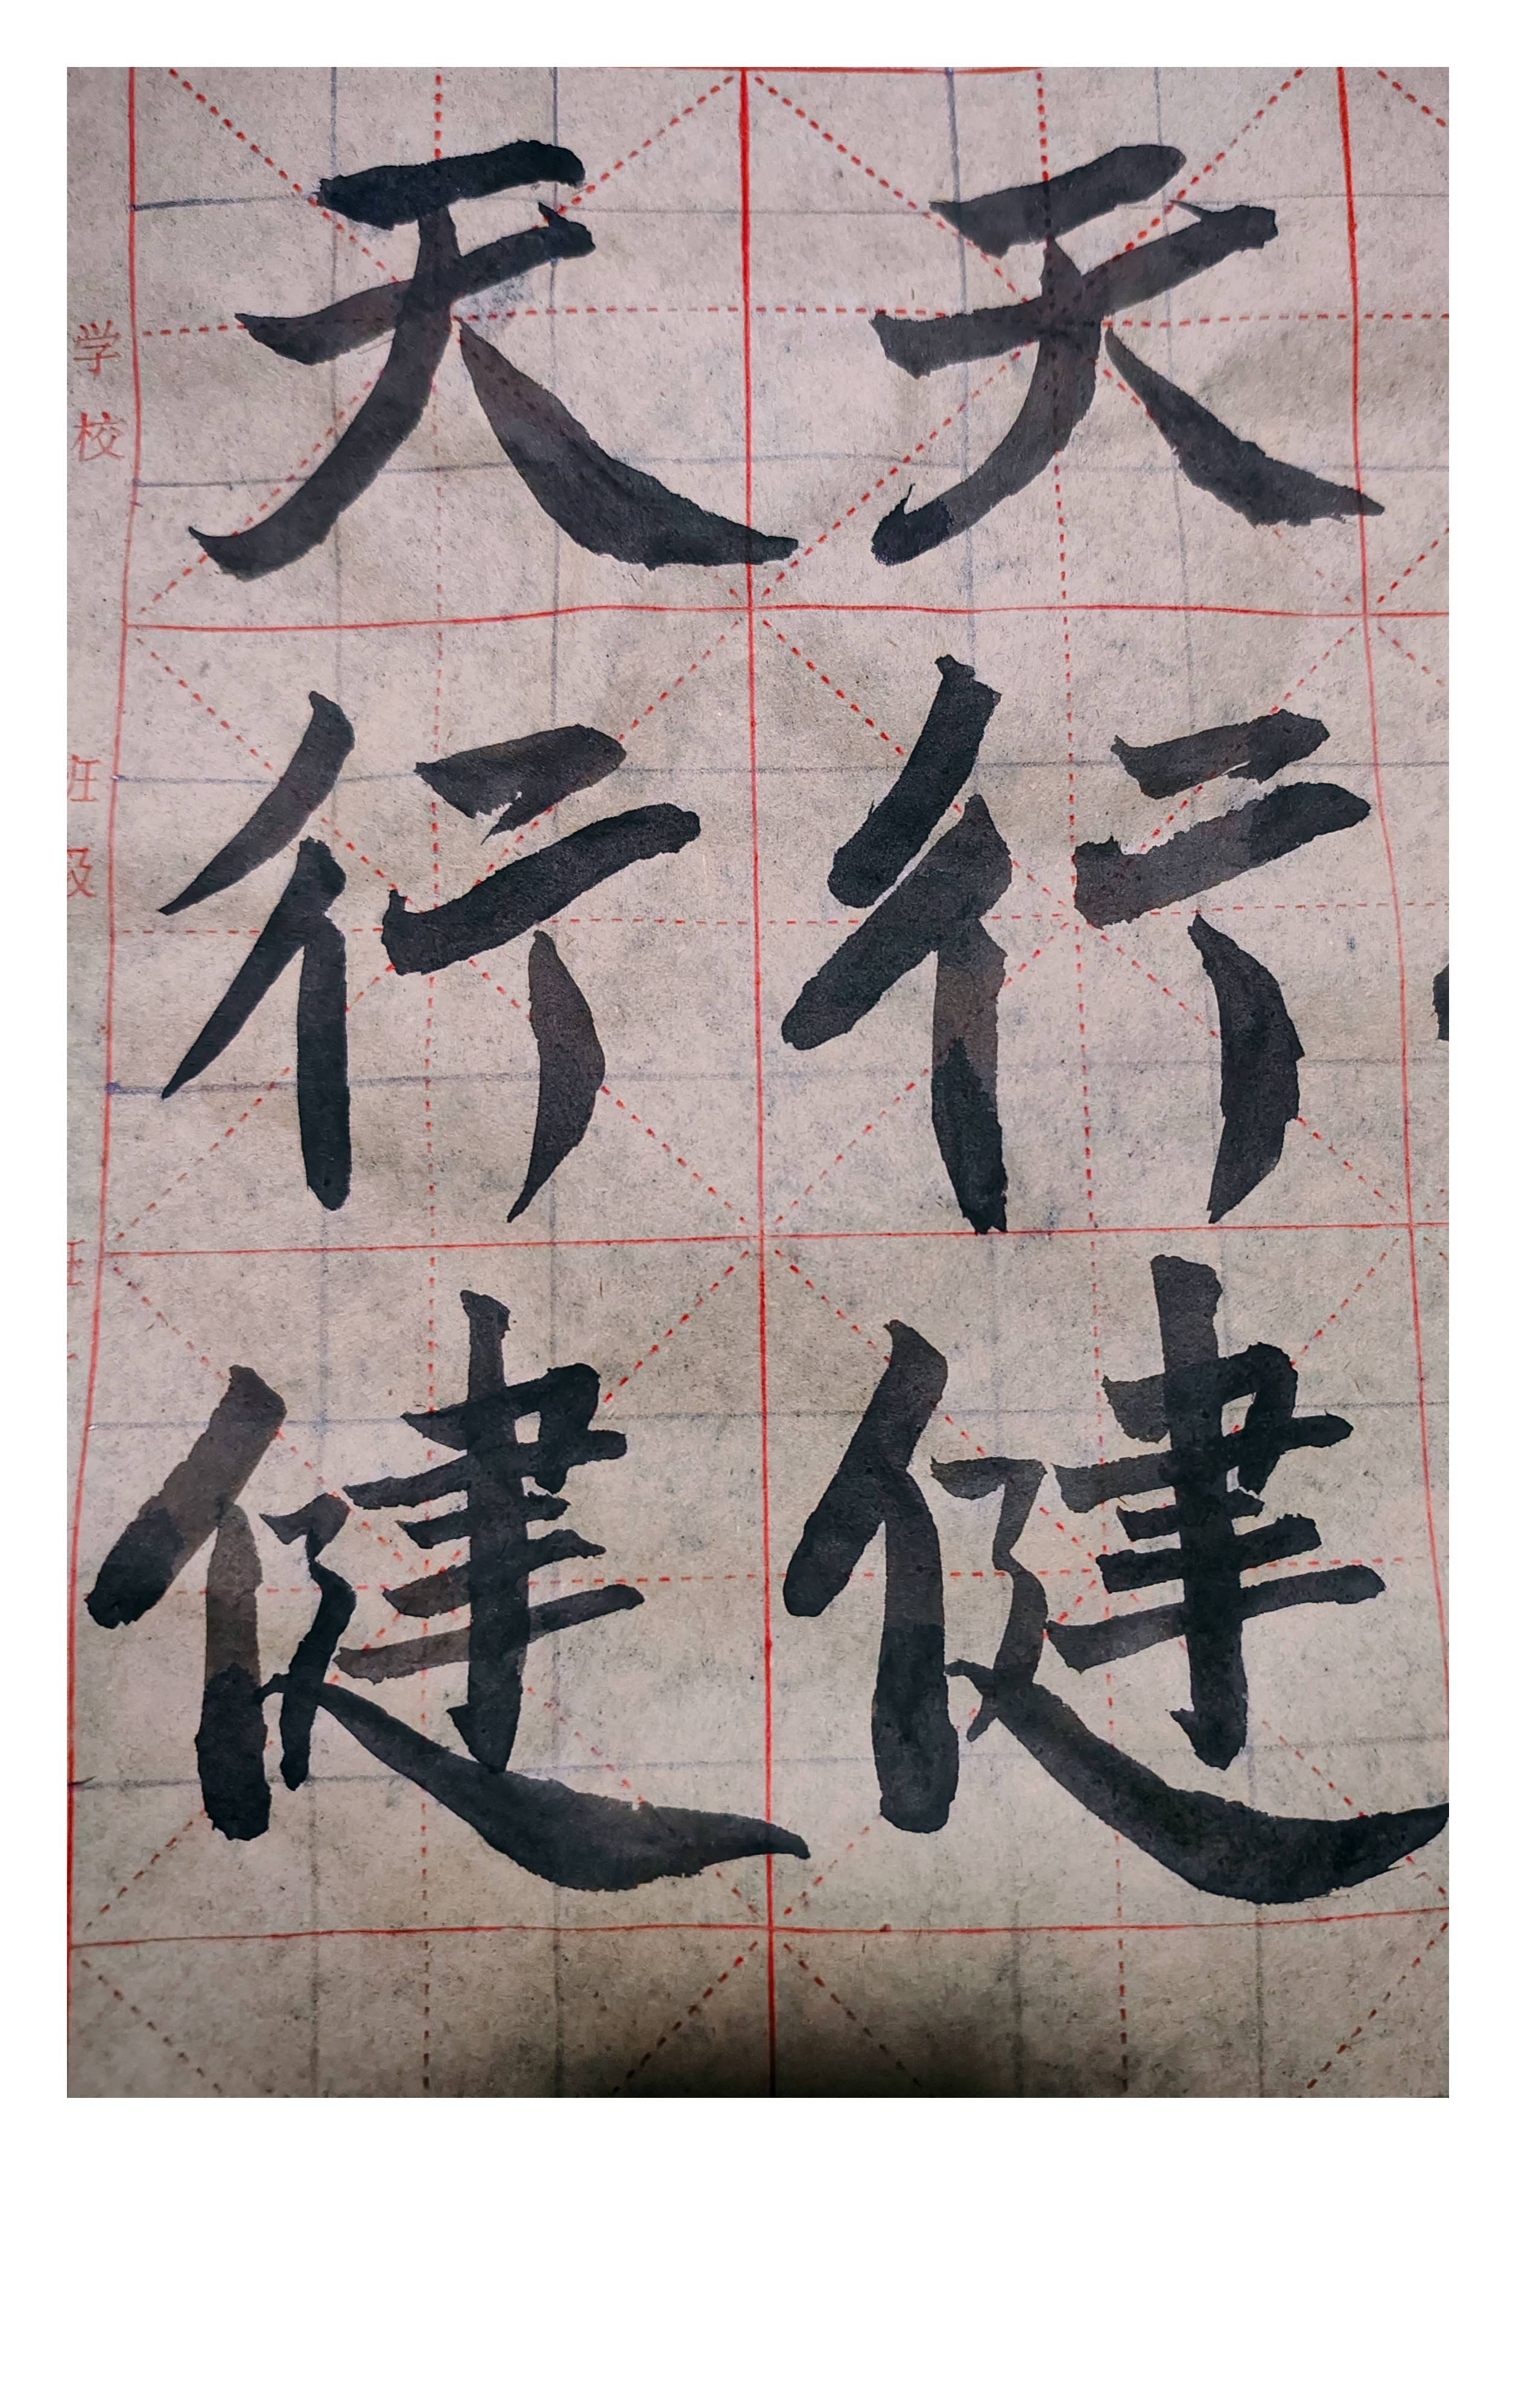 天 天
行 行
健 健
学校
班级